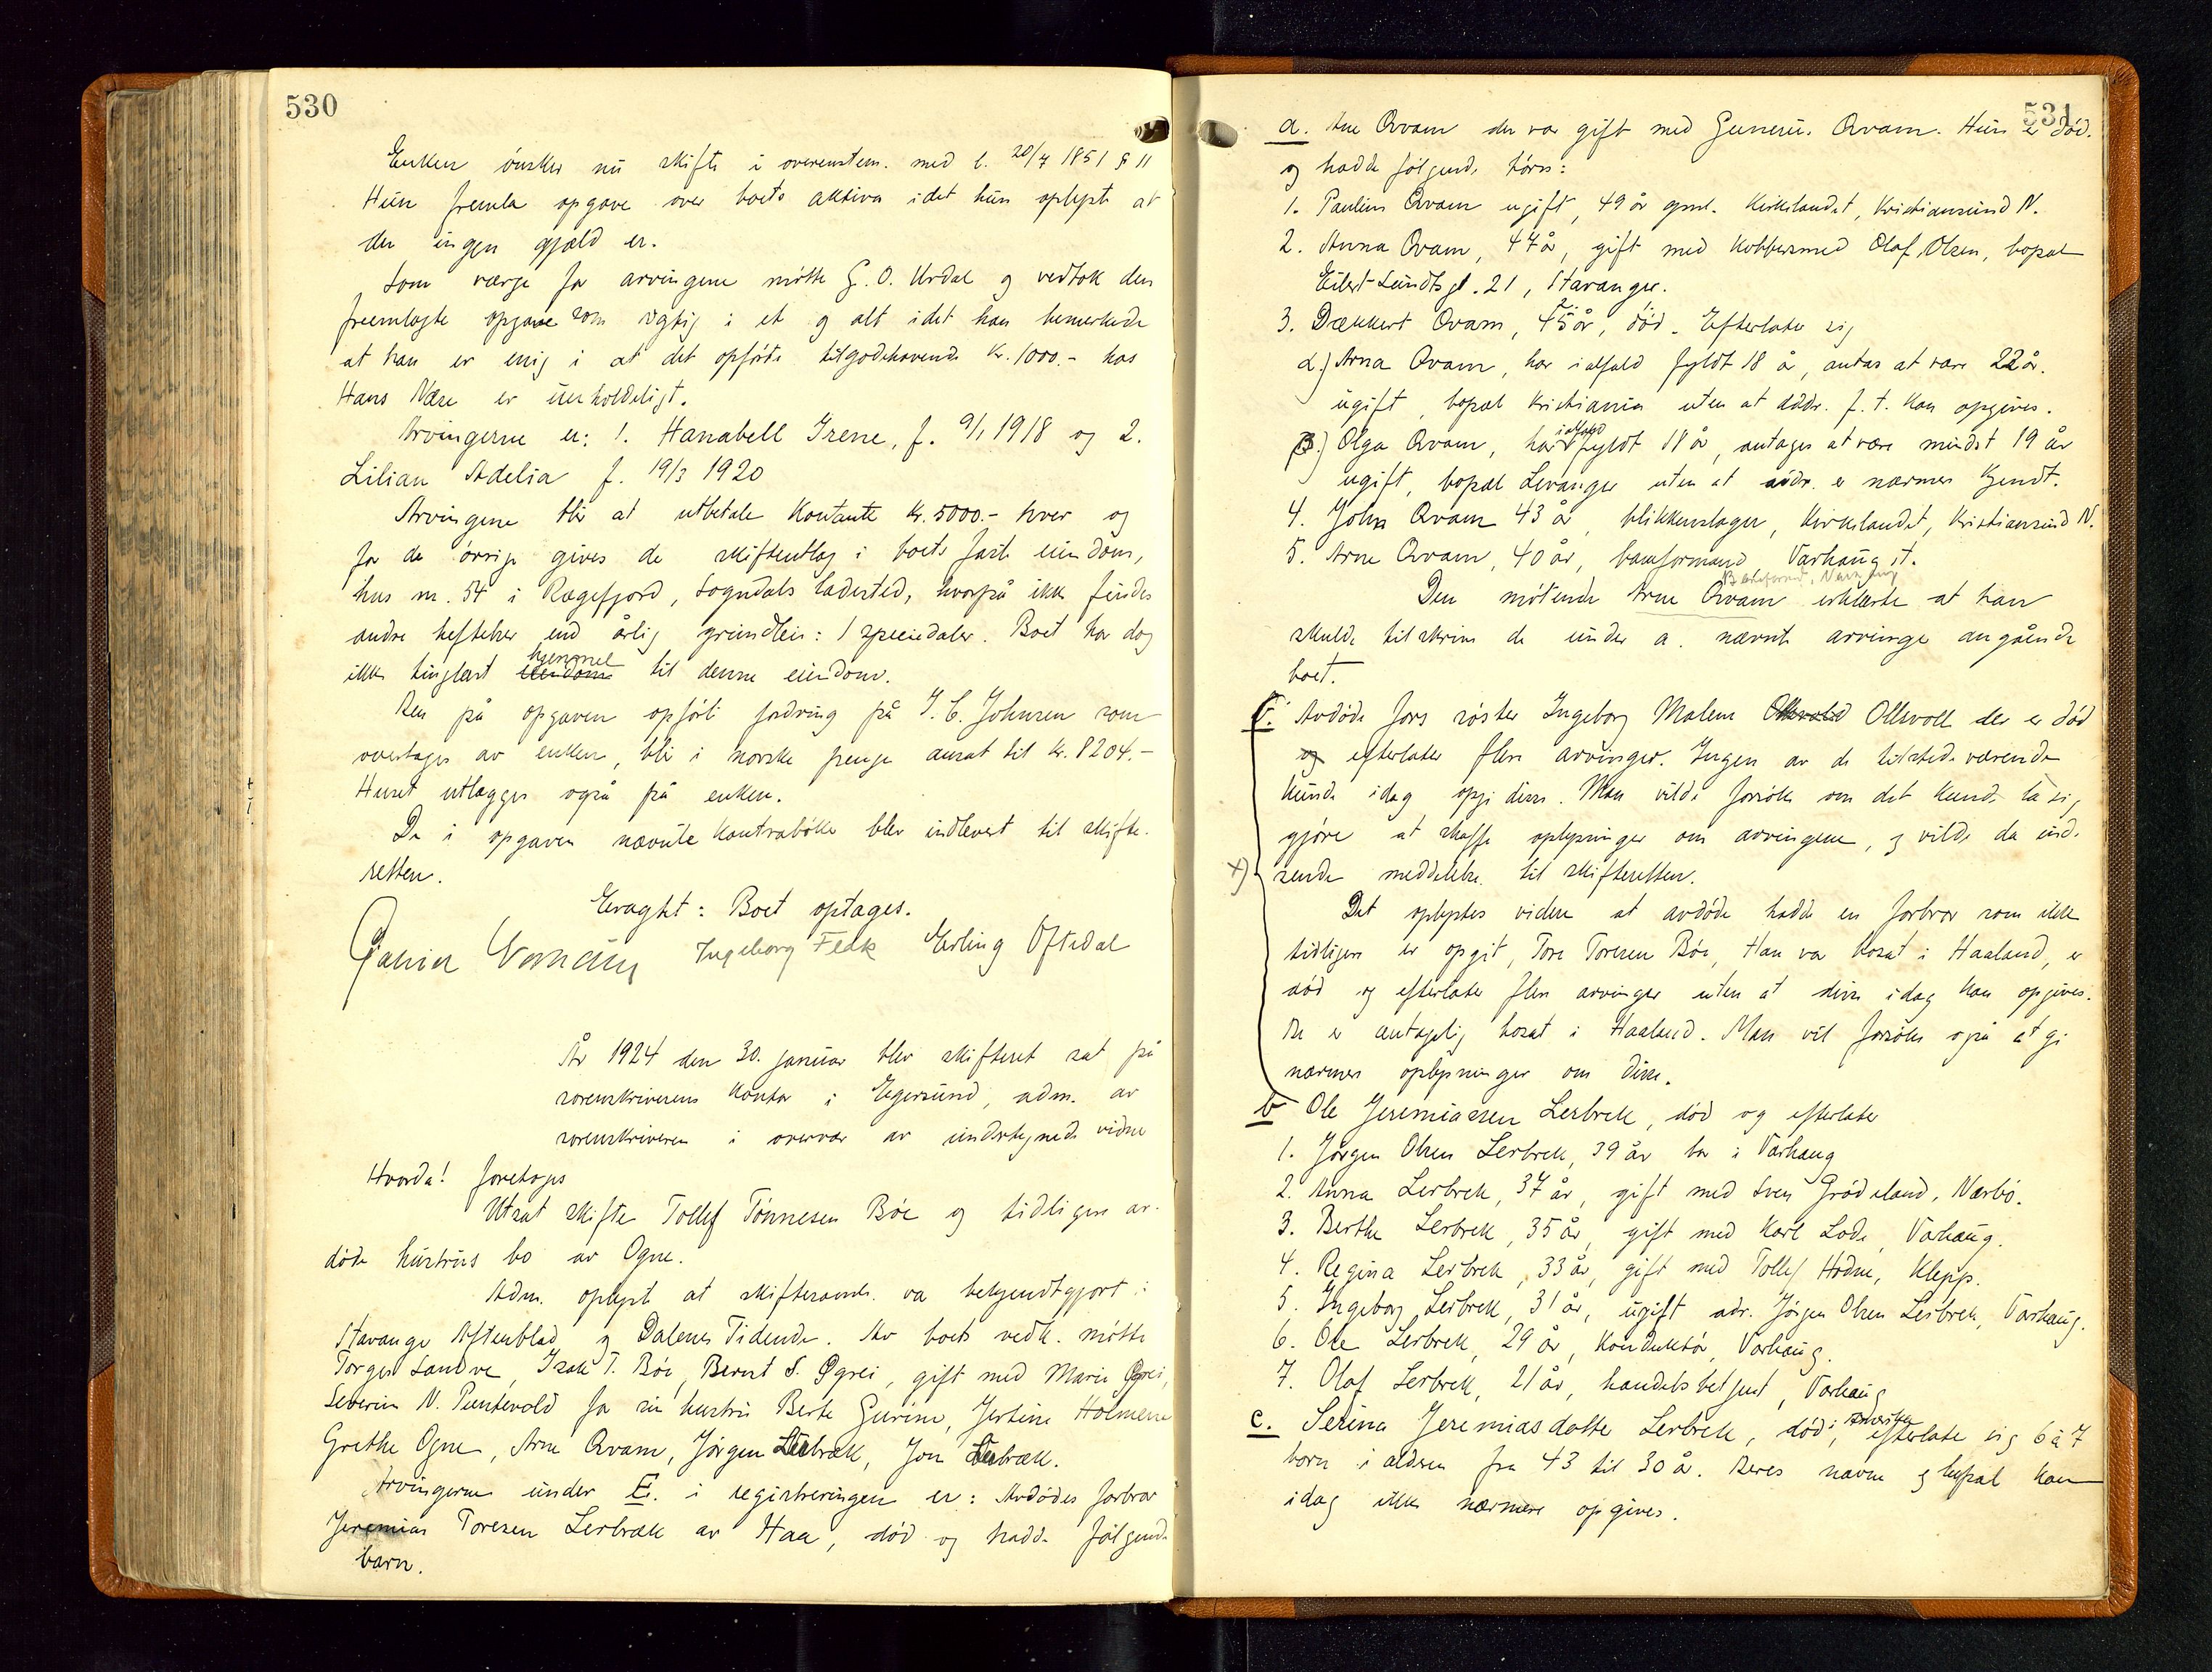 530
Enken ønsker nu skifte i overenstem. med l. 20/7 1851 § 11
Hun fremla opgave over boets aktiva idet hun oplyste at
der ingen gjæld er.
Som værge for arvingene møtte G. O. Urdal og vedtok den
fremlagte opgave som rigtig i et og alt idet han bemerkede
at han er enig i at det opførte tilgodehavende kr. 1000.- hos
Hans Næse er uerholdeligt.
Arvingerne er: 1. Hanabell Irene, f. 9/1 1918 og 2.
Lilian Adelia f. 19/3 1920
Arvingene blir at utbetale kontante kr. 5000.- hver og
for de øvrige gives de skifteutlæg i boets faste eiendom,
hus nr. 54 i Rægefjord, Sogndals ladested, hvorpå ikke findes
andre heftelser end årlig grundleie: 1 speciedaler. Boet har dog
ikke tinglæst eiendom hjemmel til denne eiendom.
Den på opgaven opførte fordring på J. C. Johnsen som
overtages av enken, blir i norske penge ansat til kr. 8204.-
Huset utlægges også på enken.
De i opgaven nævnte kontrabøker blev indlevert til skifte-
retten.
Eragtet: Boet optages.
Ingeborg Feek Erling Oftedal
År 1924 den 30. januar blev skifteret sat på
sorenskriverens kontor i Egersund, adm. av
sorenskriveren i overvær av undertegnede vidne
Hvorda! foretoges
Utsat skifte Tollef Tønnesen Bøe og tidligere av-
døde hustrus bo av Ogne.
Adm. oplyste at skiftesaml. var bekjendtgjort i
Stavanger Aftenblad og Dalenes Tidende. Av boets vedk. møtte
Torger Sandve, Isak T. Bøe, Bernt S. Øgrei, gift med Marie Øgrei,
Severin N. Puntevold for sin hustru Berte Gurine, Jertine Holmene
Grethe Ogne, Arne Qvam, Jørgen Lerbræk, Jon Lerbræk.
Arvingerne under E. i registreringen er: Avdødes farbror
Jeremias Toresen Lerbræk av Haa, død og hadde følgende
barn.
531
a. Ane Qvam der var gift med Gunerius Qvam. Hun er død.
og hadde følgende børn:
1. Pauline Qvam ugift, 49 år gml. Kirkelandet, Kristiansund N.
2. Anna Qvam, 47 år, gift med kobbersmed Olaf Olsen, bopæl
Eilert Sundts gt. 21, Stavanger.
3. Dækkert Qvam, 45 år, død. Efterlater sig
α.) Arna Qvam, har ialfald fyldt 18 år, antas at være 22 år.
ugift, bopæl Kristiania uten at addr. f. t. kan opgives.
β.) Olga Qvam, har ialfald fyldt 18 år, antages at være mindst 19 år
ugift, bopæl Levanger uten at addr. er nærmere kjendt.
4. John Qvam 43 år, blikkenslager, Kirkelandet, Kristiansund N.
5. Arne Qvam, 40 år, baneformand Varhaug st.
Baneformand, Varhaug
Den møtende Arne Qvam erklærte at han
skulde tilskrive de under a. nævnte arvinge angående
boet.
F. Avdøde fars søster Ingeborg Malene Ollsvold Ollsvoll der er død
og efterlater flere arvinger. Ingen av de tilstedeværende
kunde idag opgi disse. Man vilde forsøke om det kunde la sig
gjøre at skaffe oplysninger om arvingene, og vilde da ind-
x) sende meddelelse til skifteretten.
Det oplystes videre at avdøde hadde en farbror som ikke
tidligere er opgit, Tore Toresen Bøe, Han var bosat i Haaland, er
død og efterlater flere arvinger uten at disse idag kan opgives.
De er antagelig bosat i Haaland. Man vil forsøke også at gi
nærmere oplysninger om disse.
b Ole Jeremiassen Lerbrek, død og efterlater
1. Jørgen Olsen Lerbrek, 39 år bor i Varhaug
2. Anna Lerbrek, 37 år, gift med Sven Grødeland, Nærbø.
3. Berthe Lerbrek, 35 år, gift med Karl Lode, Varhaug.
4. Regina Lerbrek, 33 år, gift med Tollef Hodne, Klepp.
5. Ingeborg Lerbrek, 31 år, ugift adr. Jørgen Olsen Lerbrek, Varhaug.
6. Ole Lerbrek, 29 år, konduktør, Varhaug.
7. Olaf Lerbrek, 21 år, handelsbetjent, Varhaug
c. Serina Jeremiasdatter Lerbrek, død i Amerika, efterlate sig 6 à 7
barn i alderen fra 43 til 30 år. Deres navne og bopæl kan
idag ikke nærmere opgives.